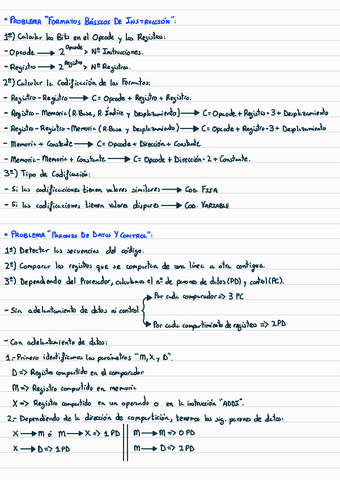 • PROBLEMA "FORMATOS BÁSICOS DE INSTRUCCIÓN":
1º) Calcular los Bits en el Opcode y los Registros:
- Opcode → 2^Opcode > Nº Instrucciones.
- Registro → 2^Registro > Nº Registros.
2º) Calcular la Codificación de los Formatos:
- Registro-Registro → C = Opcode + Registro + Registro.
- Registro-Memoria (R.Base, R.Índice y Desplazamiento) → C = Opcode + Registro·3 + Desplazamiento
- Registro-Registro-Memoria (R.Base y Desplazamiento) → C = Opcode + Registro·3 + Desplazamiento
- Memoria + Constante → C = Opcode + Dirección + Constante
- Memoria-Memoria + Constante → C = Opcode + Dirección·2 + Constante.
3º) Tipo de Codificación:
- Si las codificaciones tienen valores similares → COD. FIJA
- Si las codificaciones tienen valores dispares → COD. VARIABLE
• PROBLEMA "PARONES DE DATOS Y CONTROL":
1º) Detectar las secuencias del código.
2º) Comparar los registros que se comparten de una línea a otra contigua.
3º) Dependiendo del Procesador, calculamos el nº de parones de datos (PD) y control (PC).
Por cada comparador => 3 PC
- Sin adelantamiento de datos ni control
Por cada compartimiento de registros => 2PD
- Con adelantamiento de datos:
1.- Primero identificamos los parámetros "M, X y D".
D => Registro compartido en el comparador
M => Registro compartido en memoria
X => Registro compartido en un operando o en la instrucción "ADDI".
2.- Dependiendo de la dirección de compartición, tenemos los sig. parones de datos:
X → M ó M → X => 1PD || M → M => 0PD
X → D => 1PD || M → D => 2PD